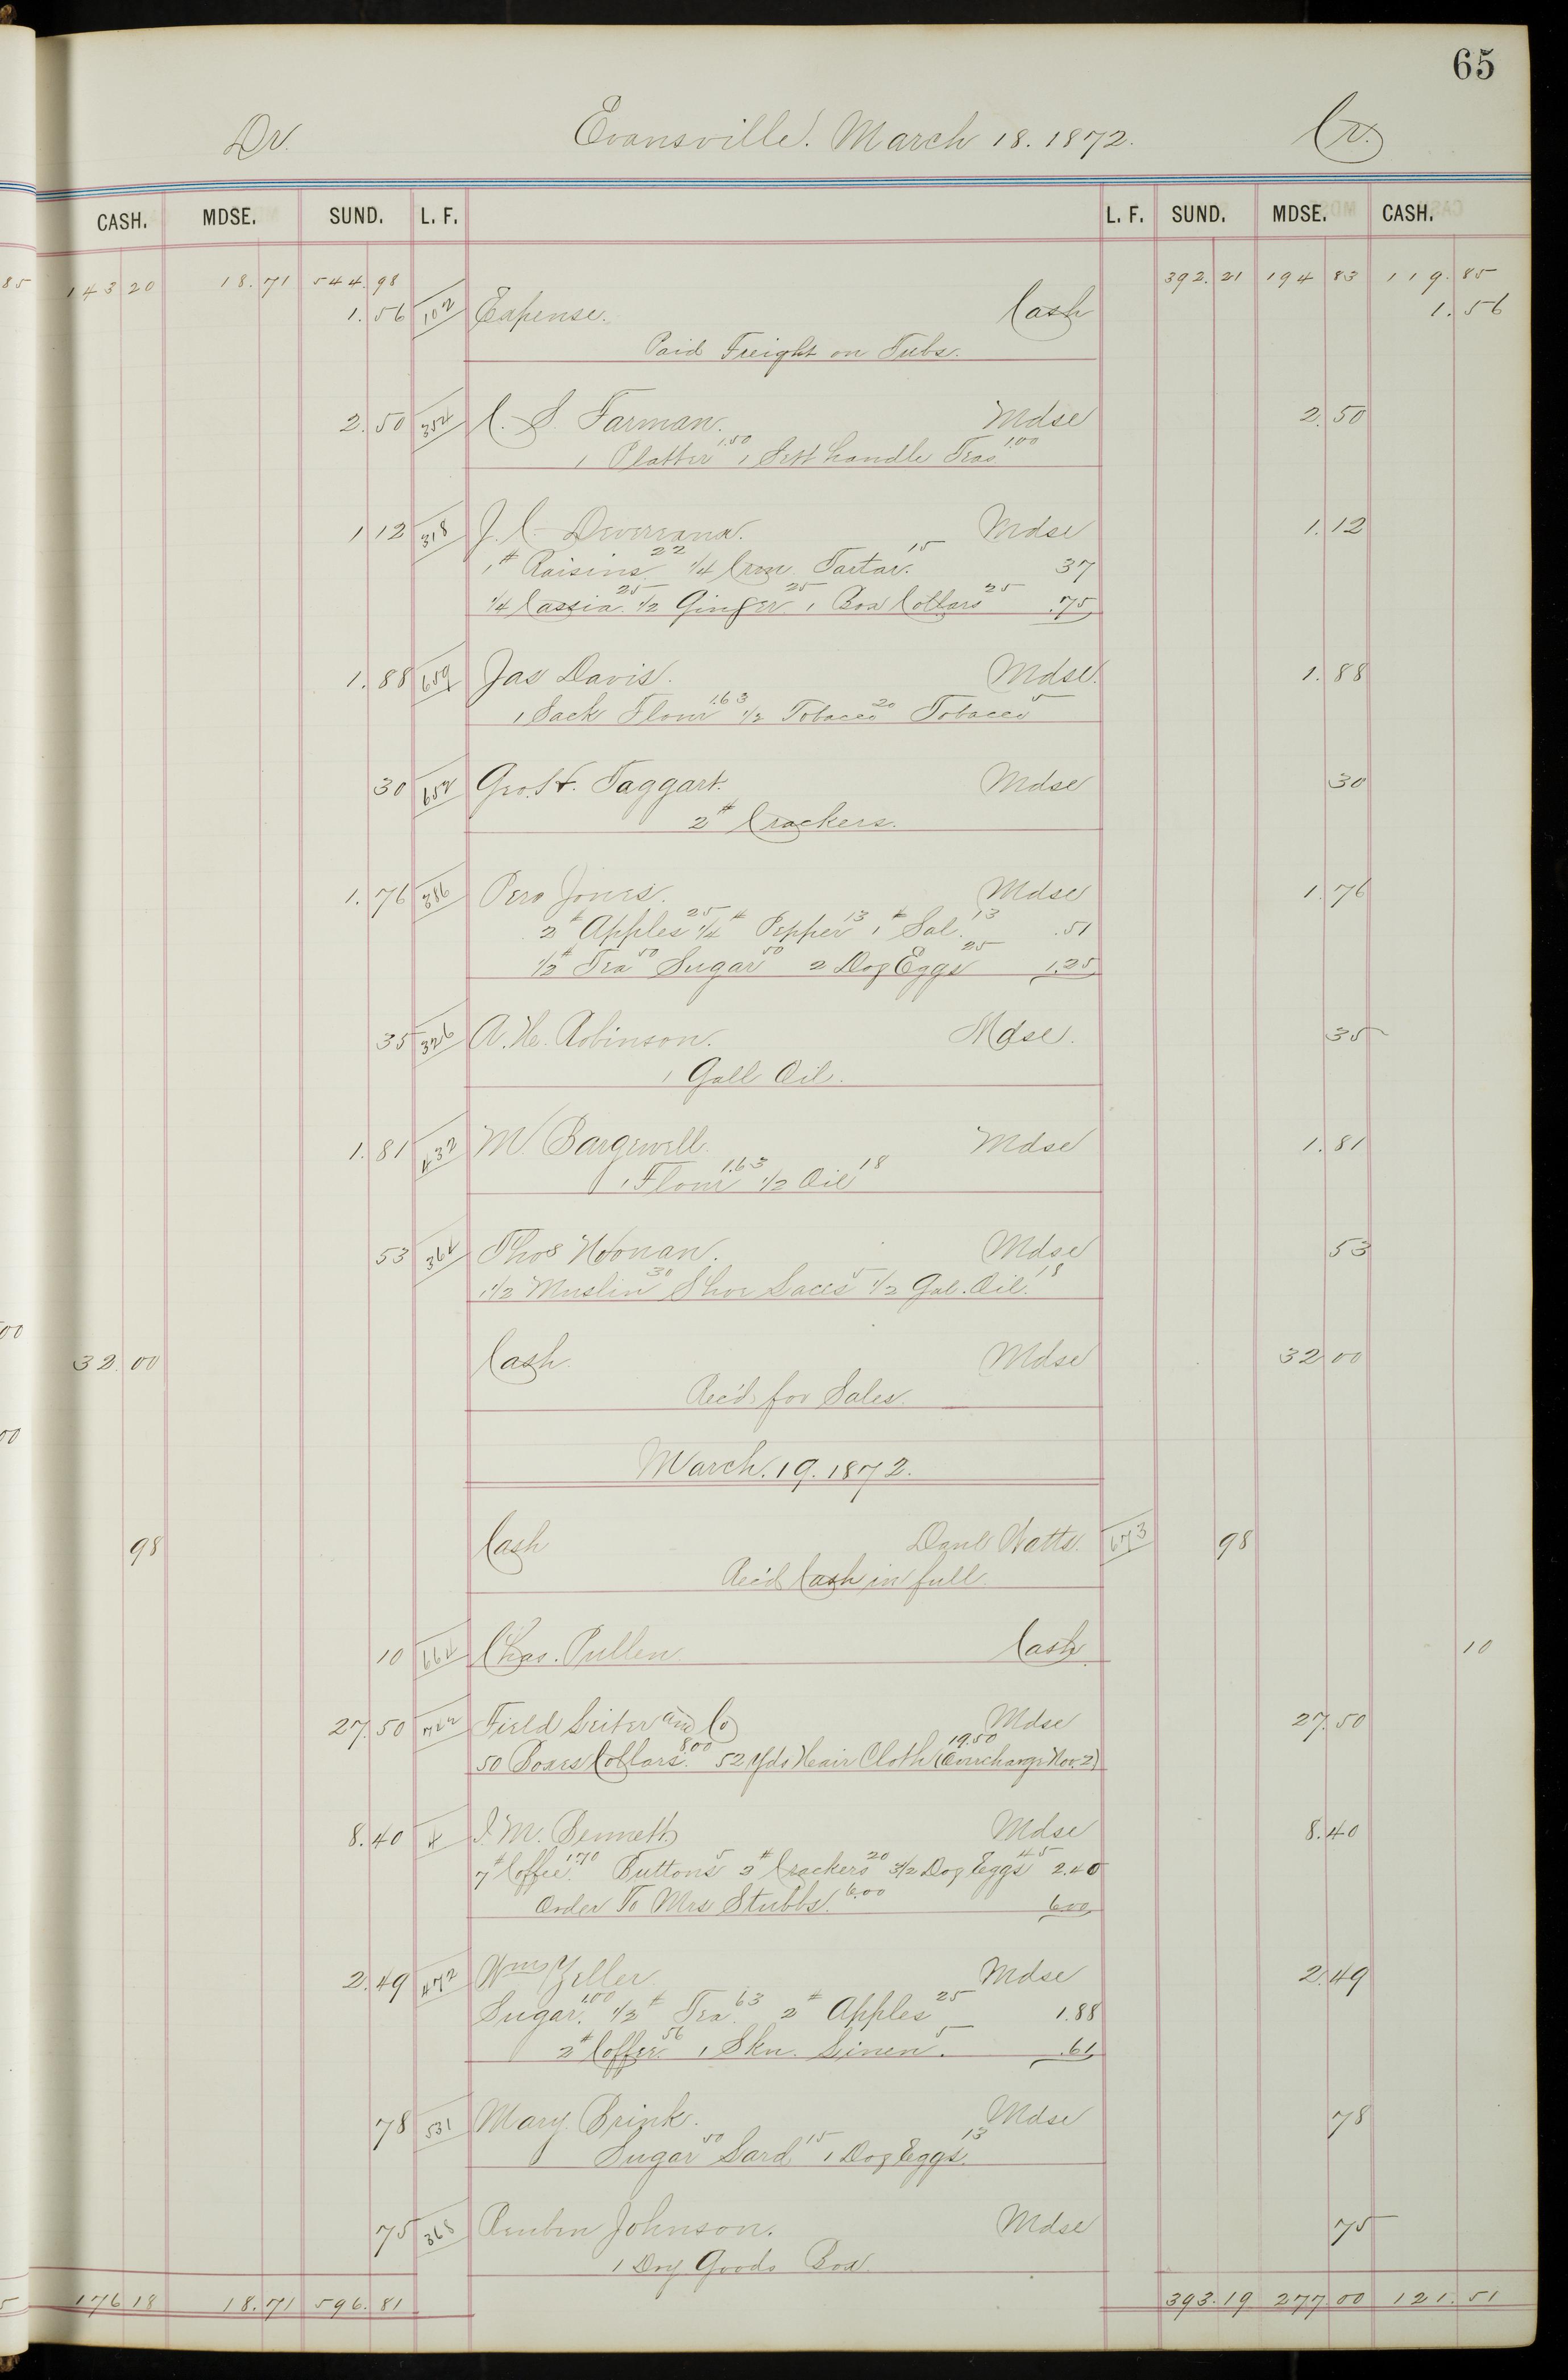 65
Dr. Evansville. March 18. 1872. Cr.
CASH. MDSE. SUND. L. F. L. F. SUND. MDSE. CASH.
143 20 18.71 544.98 392.21 194 83 119.85
1.56 102 Expense. Cash 1.56
Paid Freight on Tubs.
2.50 352 C. S. Farman. Mdse 2.50
1 Platter 1.50 1 Sett handle Teas 1.00
1 12 318 J. C. Mdse 1.12
1# Raisins 22 1/4 Crem Tartar. 15 37
1/4 Cassia 25 1/2 Ginger 25 1 Box Collars 25 .75
1.88 659 Jas Davis. Mdse. 1.88
1 Sack Flour 1.63 1/2 Tobacco 20 Tobacco 5
30 652 Geo. H. Taggart. Mdse 30
2# Crackers.
1.76 386 Pero Jones. Mdse 1.76
2# Apples 25 1/4# Pepper 13 1# Sal. 13 .51
1/2# Tea 50 Sugar 50 2 Doz Eggs 25 1.25
35 326 A. He. Robinson. Mdse. 35
1 Gall Oil.
1.81 432 M. Bargewell. Mdse 1.81
1 Flour 1.63 1/2 Oil 18
53 364 Thos Noonan. Mdse 53
1 1/2 Muslin 30 Shoe Laces 5 1/2 Gal. Oil. 18
32.00 Cash. Mdse 32 00
Rec'd for Sales.
March. 19. 1872.
98 Cash Danl Watts. 673 98
Rec'd Cash in full.
10 664 Chas. Pullen. Cash 10
27.50 Field Leiter and Co Mdse 27.50
50 Boxes Collars. 8.00 52 Yds Hair Cloth 19.50 (Overcharge Nov. 2)
8.40 4 I. M. Bennett Mdse 8.40
7# Coffee 1.70 Buttons 5 2# Crackers 20 3 1/2 Doz Eggs 45 2.40
Order To Mrs Stubbs. 6.00 6.00
2.49 472 Wm Yeller. Mdse 2.49
Sugar. 1.00 1/2# Tea. 63 2# Apples 25 1.88
2# Coffee. 56 1 Skn. Linen. 5 .61
78 531 Mary Brink. Mdse 78
Sugar 50 Lard 15 1 Doz Eggs. 13
75 368 Reuben Johnson. Mdse 75
1 Dry Goods Box.
176 18 18.71 596.81 393.19 277 00 121.51